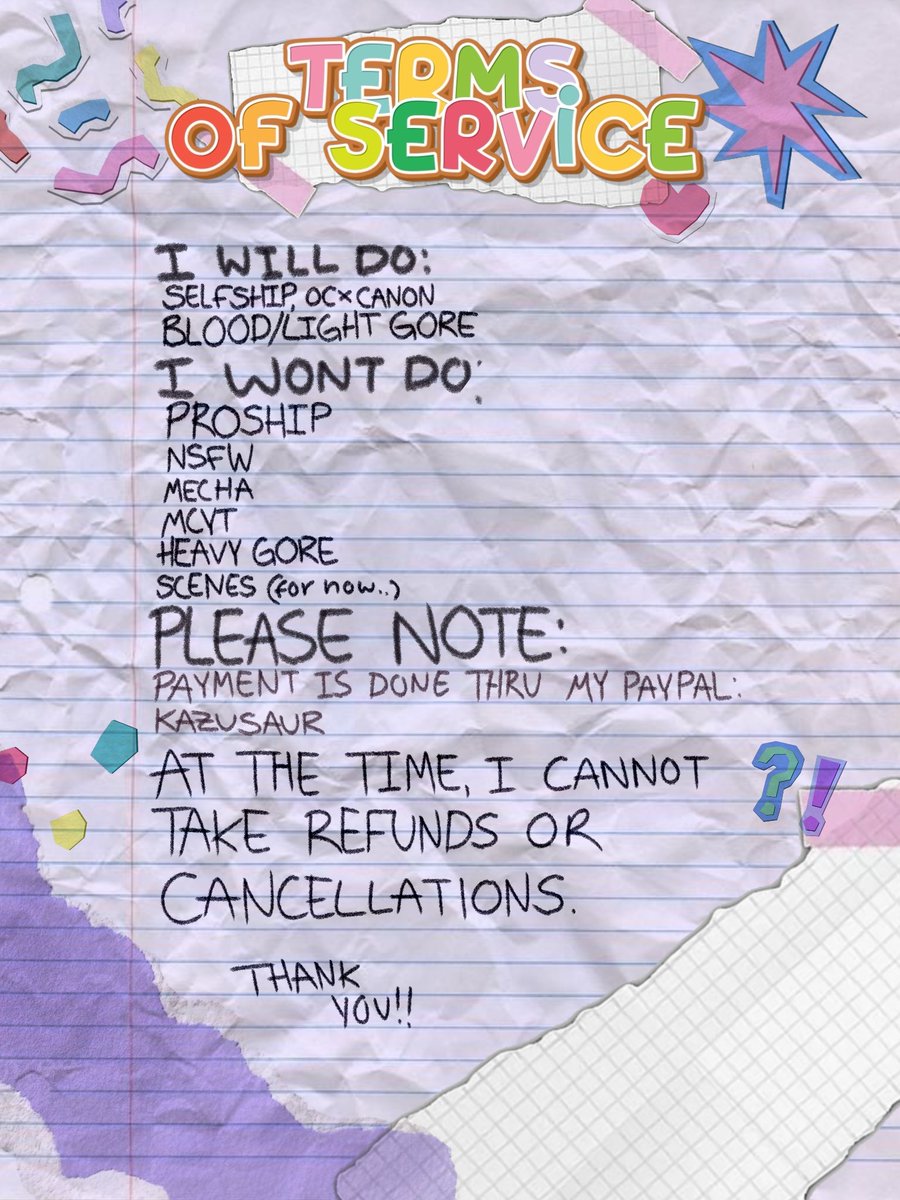 TERMS
OF SERViCE
I WILL DO:
SELFSHIP, OC×CANON
BLOOD/LIGHT GORE
I WONT DO:
PROSHIP
NSFW
MECHA
MCYT
HEAVY GORE
SCENES (for now..)
PLEASE NOTE:
PAYMENT IS DONE THRU MY PAYPAL:
KAZUSAUR
AT THE TIME, I CANNOT
TAKE REFUNDS OR
CANCELLATIONS.
?!
THANK
YOU!!